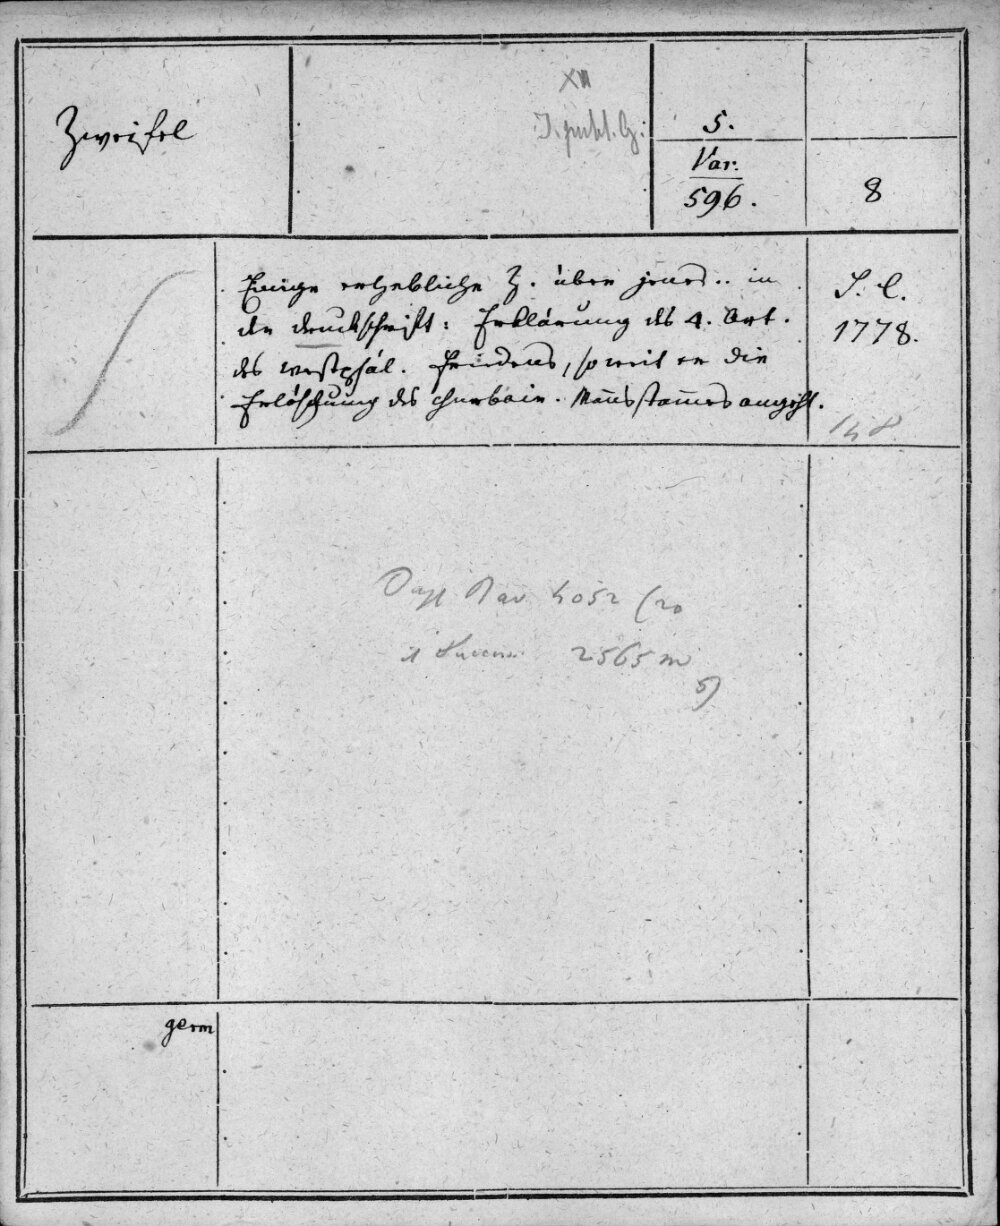 Zweifel
XVI
J. publ. G.
5.
Var.
596.
8
Einige erhebliche Z. über jenes .. in
der Druckschrift: Erklärung des 4. Art.
des westphäl. Friedens, so weit er die
Erlöschung des churbair. Mannsstammes angeht.
S. l.
1778.
148
Bav 4052 (20
2565 m
5)
germ